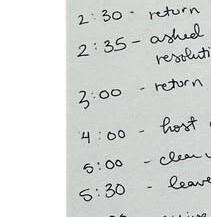 2:30 - return
2:35 - asked
resoluti
3:00 - return
4:00 - host
5:00 - clean
5:30 - leave